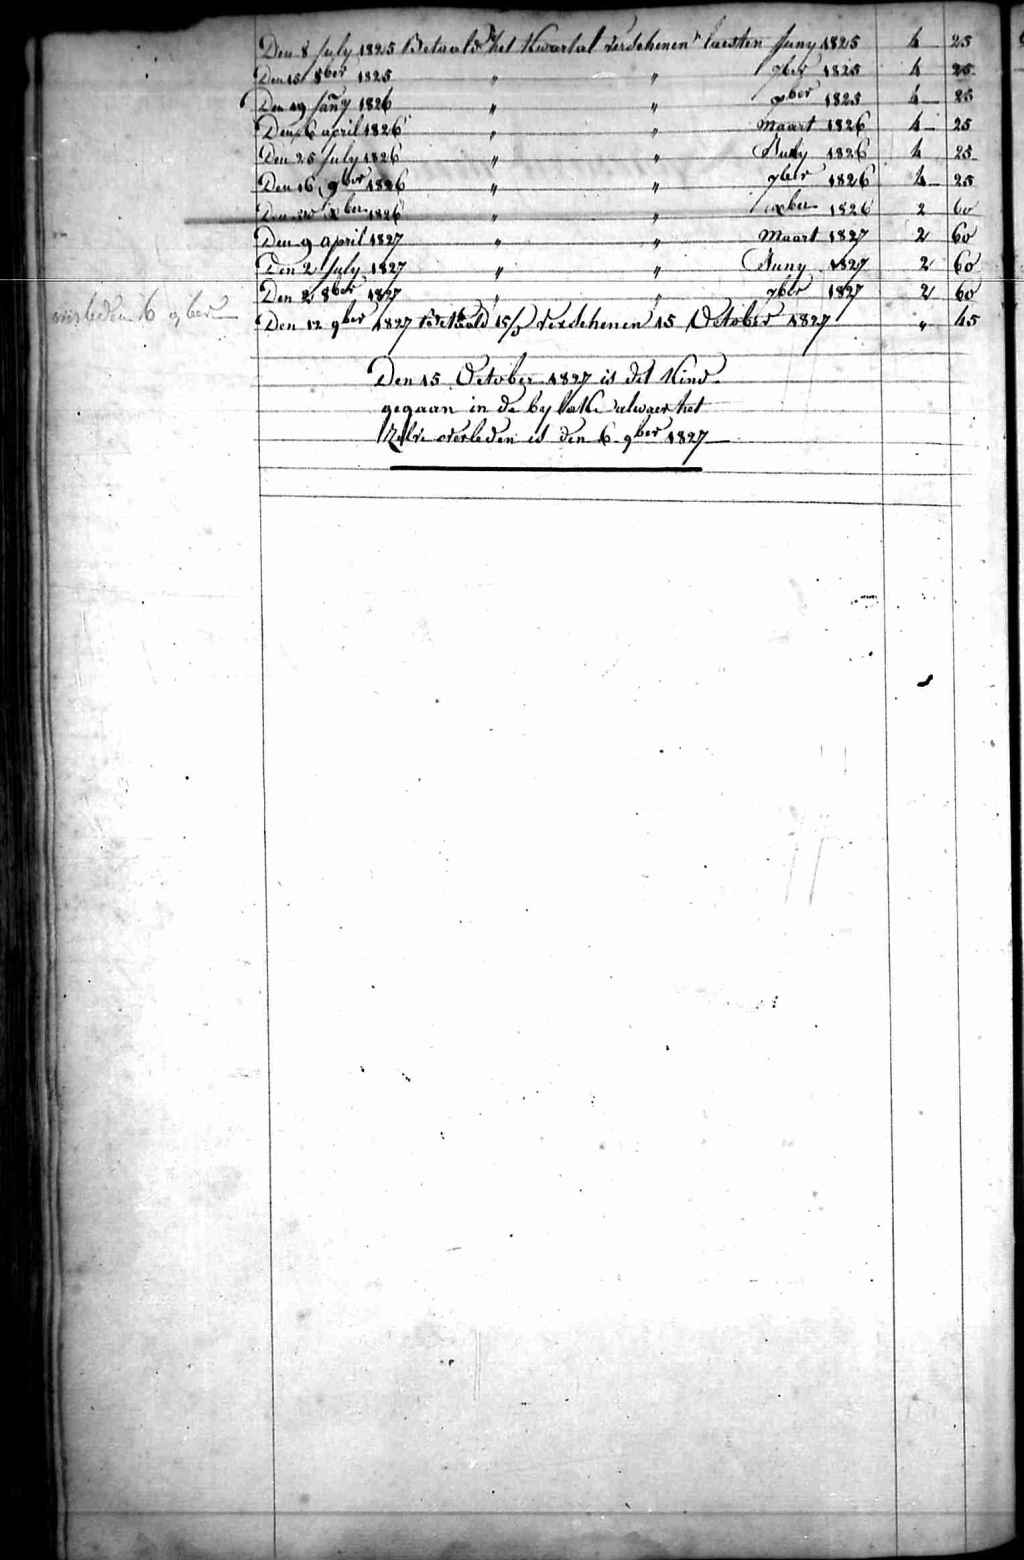 Den 8 July 1825 Betaald het Kwartal verschenen laesten Juny 1825 4 25
Den 15 8ber 1825 " " 7ber 1825 4 25
Den 19 Jany 1826 " " xber 1825 4 25
Den 6 april 1826 " " Maart 1826 4 25
Den 25 July 1826 " " Juny 1826 4 25
Den 16 9ber 1826 " " 7ber 1826 4 25
Den xber 1826 " " xber 1826 2 60
Den 9 april 1827 " " Maart 1827 2 60
Den 2 July 1827 " " Juny 1827 2 60
Den 2 8ber 1827 " " 7ber 1827 2 60
overleden 6 9ber
Den 12 9ber 1827 betaald 15/ verschenen 15 October 1827 " 45
Den 15 October 1827 is det Kind
gegaan in de alwaer het
Zelve overleden is den 6 9ber 1827